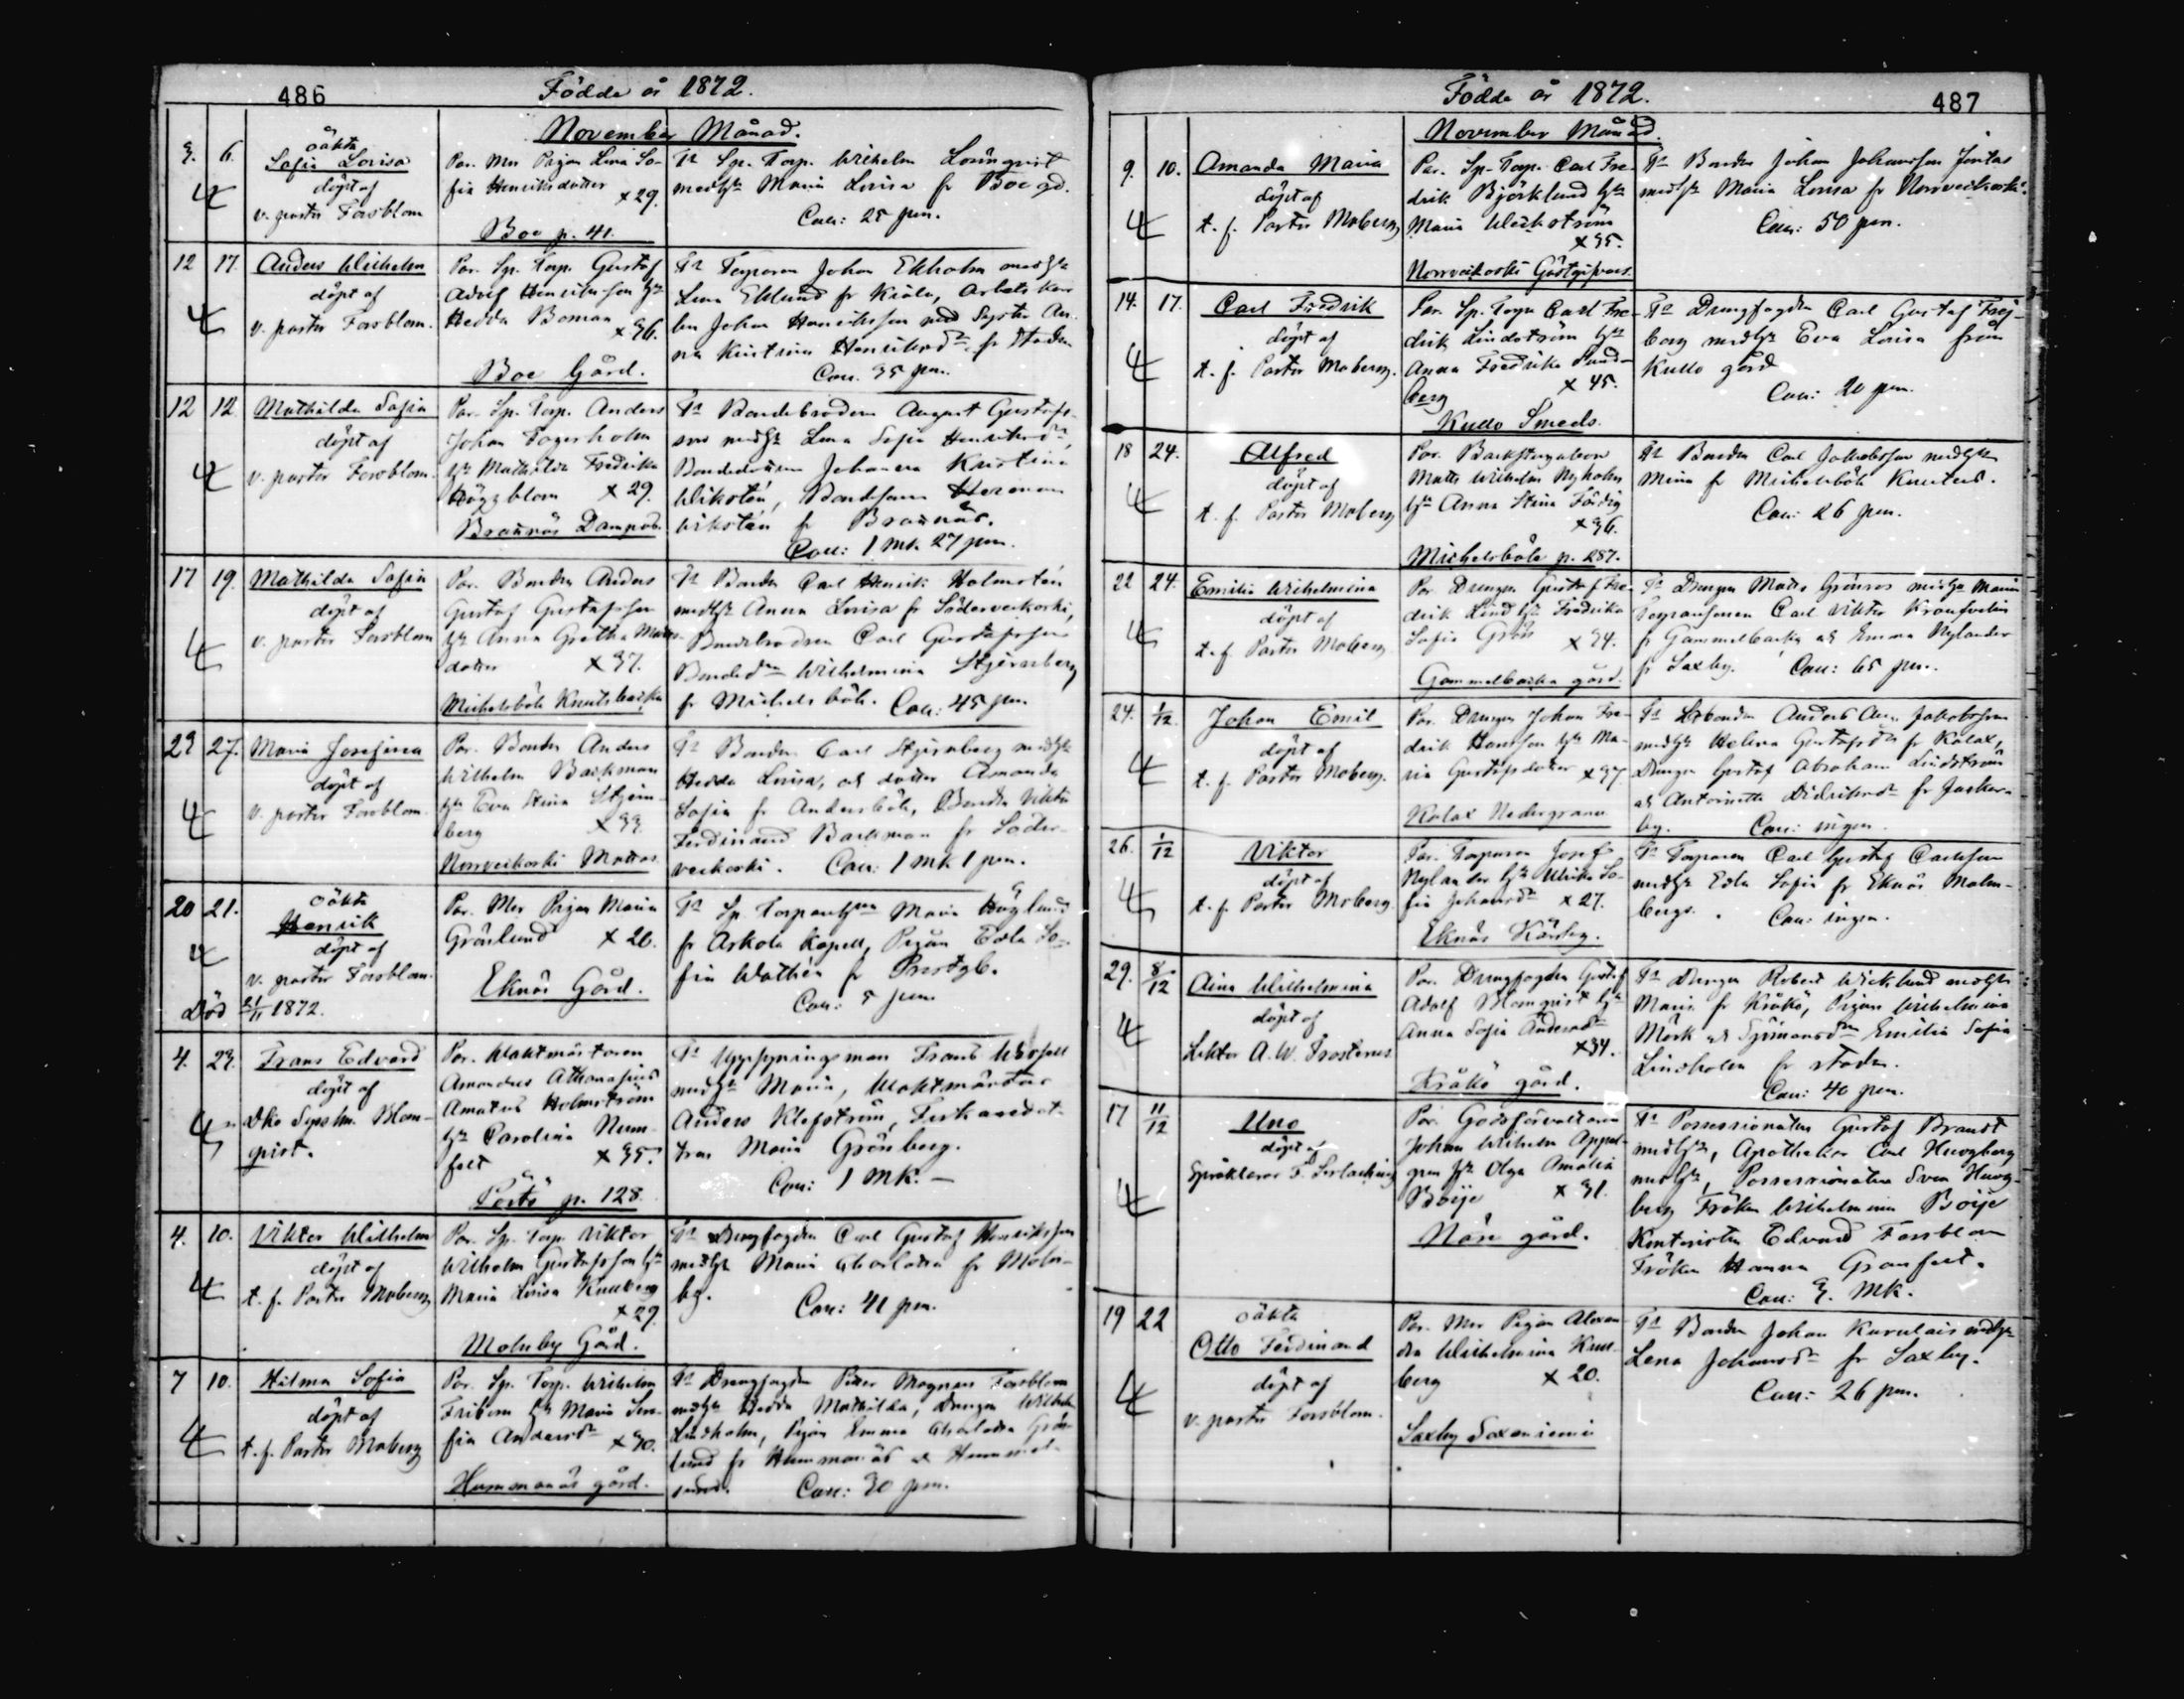 486
Födde år 1872.
November Månad.
3. 6.
oäkta
Sofia Lovisa
döpt af
v. pastor Forsblom
Par. Mor Pigan Lena So-
fia Henriksdotter
x 29.
Boe p. 41.
Fr Sp. Torp. Wilhelm Lönnqvist
medhu Maria Lovisa fr Boe gd.
Con: 25 pen.
12 17.
Anders Wilhelm
döpt af
v. pastor Forsblom.
Par. Sp. Torp. Gustaf
Adolf Henriksson hu
Hedda Boman
x 36.
Boe Gård.
Fr Torparen Johan Ekholm medhu
Lena Eklund fr Kiala, Arbetskar
len Johan Henriksson med Syster An-
na Kristina Henriksdr fr Staden
Con. 35 pen.
12 12
Mathilda Sofia
döpt af
v. pastor Forsblom.
Par. Sp. Torp. Anders
Johan Fagerholm
hu Mathilda Fredrika
Häggblom x 29.
Braxnäs Dampab.
Fr Bondebrodern August Gustafs-
son medhu Lena Sofia Henriksdr,
Bondedottren Johanna Kristina
Wikstén, Bondsonen Herman
Wikstén fr Braxnäs.
Con: 1 mk 27 pen.
17 19.
Mathilda Sofia
döpt af
v. pastor Forsblom
Par. Bonden Anders
Gustaf Gustafsson
hu Anna Gretha Matts-
dotter x 37.
Michelsböle Knutsbacka
Fr Bonden Carl Henrik Holmstén
medhu Anna Lovisa fr Söderveckoski,
Bondebrodren Carl Gustafsson
Bondedn Wilhelmina Stjernberg
fr Michelsböle. Con: 45 pen.
23 27.
Maria Josefina
döpt af
v. pastor Forsblom.
Par. Bonden Anders
Wilhelm Backman
hu Eva Stina Stjern-
berg x 33.
Norrveckoski Mattas
Fr Bonden Carl Stjernberg medhu
Hedda Lovisa, och dotter Amanda
Sofia fr Andersböle, Bonden Viktor
Ferdinand Backman fr Söder-
veckoski. Con: 1 mk 1 pen.
20 21.
oäkta
Henrik
döpt af
v. pastor Forsblom.
Död 21/11 1872.
Par. Mor Pigan Maria
Gröslund x 20.
Eknäs Gård.
Fr Sp. Torparehun Maria Höglund
fr Askola Kapell, Pigan Edla So-
fia Wathén fr Prestgb.
Con: 5 pen.
4. 23.
Frans Edvard
döpt af
Blom-
qvist.
Par. Waktmästaren
Amandus Athanasius
Amatus Holmström
hu Carolina Num-
felt x 35.
p. 128
Fr Uppsyningsman Frans
medhu Maria, Waktmästar
Anders Klefström,
Maria Grönberg.
Con: 1 MK. —
4. 10.
Viktor Wilhelm
döpt af
t. f. Pastor Moberg
Par. Sp. Torp. Viktor
Wilhelm Gustafsson hu
Maria Lovisa Knuberg
x 29
Molnby Gård.
Fr Drengfogden Carl Gustaf Henriksson
medhu Maria Charlotta fr Moln-
by. Con: 41 pen.
7 10.
Hilma Sofia
döpt af
t. f. Pastor Moberg
Par. Sp. Torp. Wilhelm
Friberg hu Maria So-
fia Andersdr x 30.
Hummanäs gård.
Fr Drengfogden Petter Magnus Forsblom
medhu Hedda Mathilda, Drengen Wilhelm
Lindholm, Pigan Emma Charlotta Grön-
lund fr Hummanäs & Hummel-
sund. Con: 30 pen.
Födde år 1872.
487
November Månad.
9. 10.
Amanda Maria
döpt af
t. f. Pastor Moberg
Par. Sp. Torp. Carl Fre-
drik Björklund hu
Maria Weckström
x 35.
Norrveckoski Gästgifvars.
Fr Bonden Johan Johansson Jontas
medhu Maria Lovisa fr Norrveckoski.
Con: 50 pen.
14. 17.
Carl Fredrik
döpt af
t. f. Pastor Moberg.
Par. Sp. Torp. Carl Fre-
drik Lindström hu
Anna Fredrika Sund-
berg x 45.
Kullo Smeds.
Fr Drengfogden Carl Gustaf Frej-
borg medhu Eva Lovisa från
Kullo gård
Con: 20 pen.
18 24.
Alfred
döpt af
t. f. Pastor Moberg
Par. Backstugukarn
Matts Wilhelm Nyholm
hu Anna Stina Färdig
x 36.
Michelsböle p. 287.
Fr Bonden Carl Jakobsson medhu
Mina fr Michelsböle Knuters.
Con: 26 pen.
22 24.
Emilia Wilhelmina
döpt af
t. f. Pastor Moberg
Par. Drengen Gustaf Fre-
drik Lind hu Fredrika
Sofia Grön x 34.
Gammelbacka gård.
Fr Drengen Matts Grönros medhu Maria
Torparsonen Carl Viktor
fr Gammelbacka och Emma Nylander
fr Saxby. Con: 65 pen.
24. 1/12
Johan Emil
döpt af
t. f. Pastor Moberg.
Par. Drengen Johan Fre-
drik Hansson hu Ma-
ria Gustafsdotter x 37
Kalax Nedergrann
Fr Lösbonden Anders Jakobsson
medhu Helena Gustafsdr fr Kalax,
Drengen Gustaf Abraham Lindström
och Antoinette Didriksdr fr Jackar-
by. Con: ingen.
26. 1/12
Viktor
döpt af
t. f. Pastor Moberg
Par. Torparen Josef
Nylander hu Ulrika So-
fia Johansdr x 27.
Eknäs Kärrby.
Fr Torparen Carl Gustaf Carlsson
medhu Edla Sofia fr Eknäs Malm-
bergs. Con: ingen.
29. 8/12
Aina Wilhelmina
döpt af
Lektor A. W. Frosterus
Par. Drengfogden Gustaf
Adolf Blomqvist hu
Anna Sofia Andersdr
x 34.
Kråkö gård.
Fr Drengen Robert Wicklund medhu
Maria fr Kråkö, Pigan Wilhelmina
Mörk och Sjömansdn Emilia Sofia
Lindholm fr staden.
Con: 40 pen.
17 11/12
Uno
döpt af
Par. Godsförvaltaren
Johan Wilhelm Appel-
gren hu Olga Amalia
Boije x 31.
Näse gård.
Fr Possessionaten Gustaf Brandt
medhu, Apothekar Carl
medhu, Possessionaten Sven
berg Fröken Wilhelmina Boije
Kontoristen Edvard Forsblom
Fröken Hanna Granfelt.
Con: 3. MK.
19 22
oäkta
Otto Ferdinand
döpt af
v. pastor Forsblom.
Par. Mor Pigan Alexan-
dra Wilhelmina Knu-
berg x 20.
Saxby Saxeniemi
Fr Bonden Johan medhu
Lena Johansdr fr Saxby.
Con: 26 pen.